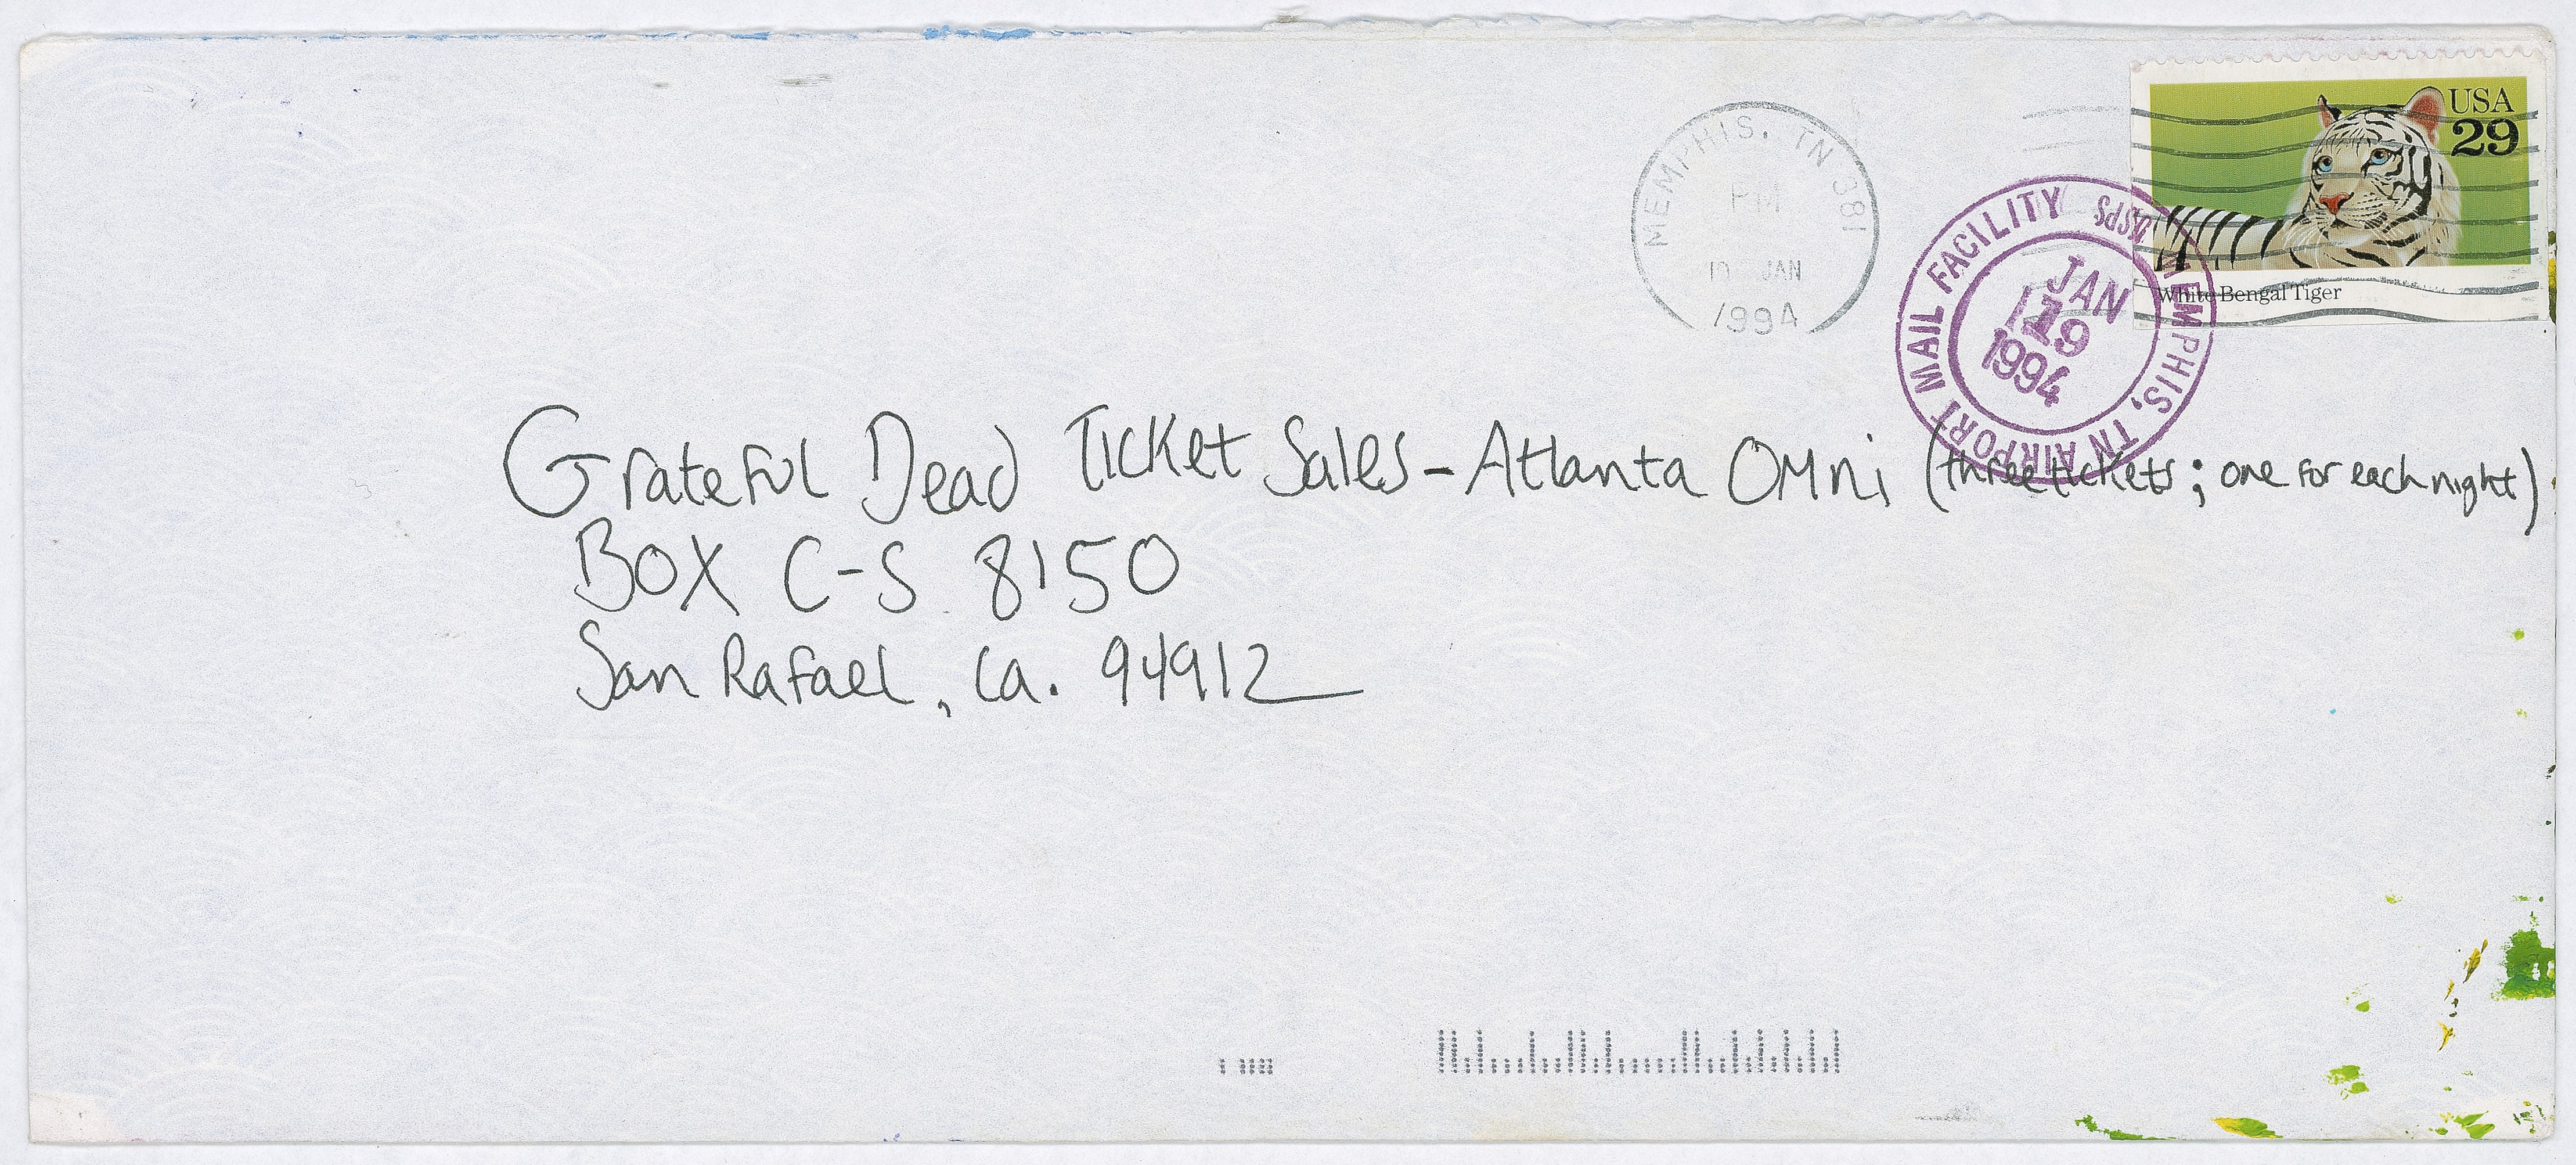 MEMPHIS, TN 381
PM
JAN
1994
USA
29
White Bengal Tiger
AIRPORT MAIL FACILITY USPS MEMPHIS, TN
JAN
19
1994
Grateful Dead Ticket Sales - Atlanta Omni (three tickets; one for each night)
BOX C-S 8150
San Rafael, Ca. 94912